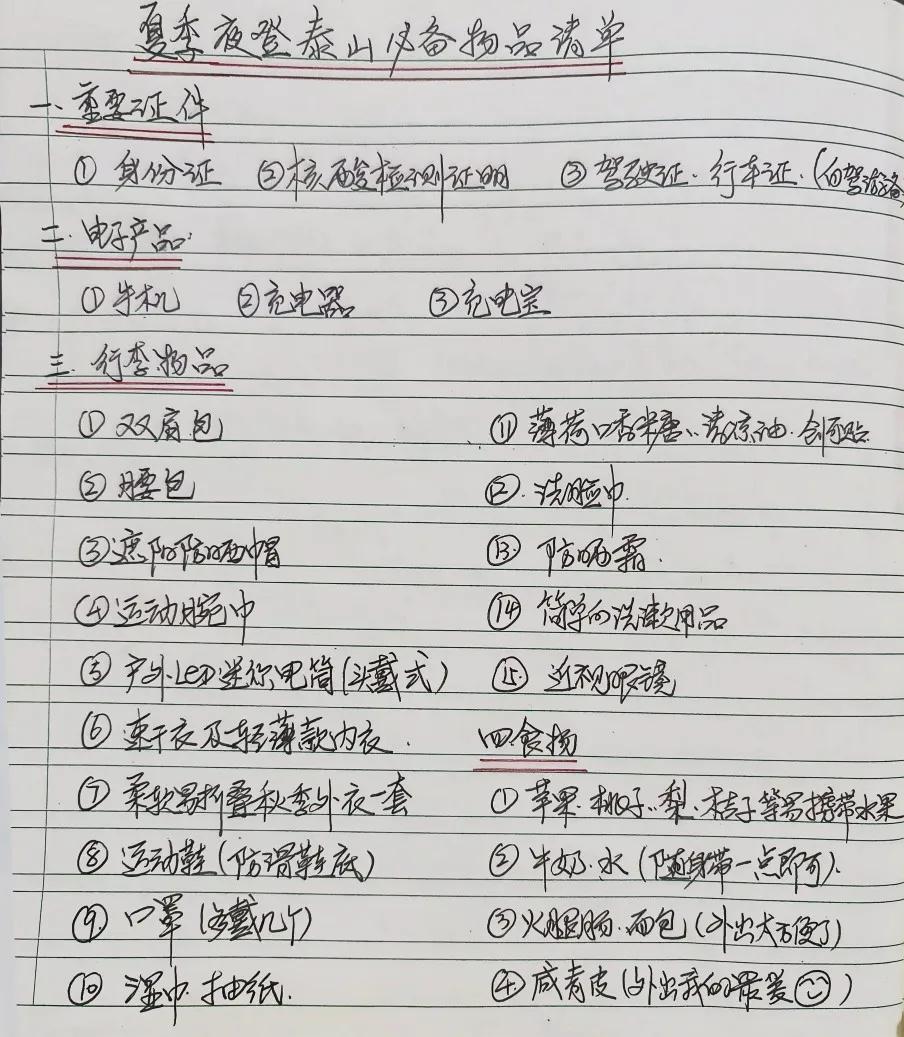 夏季夜登泰山必备物品清单
一、重要证件
① 身份证 ②核酸检测证明 ③驾驶证、行车证、(自驾游备)
二、电子产品:
①手机 ②充电器 ③充电宝
三、行李物品
①双肩包
②腰包
③遮阳防晒帽
④运动腕巾
⑤户外LED迷你电筒(头戴式)
⑥速干衣及轻薄款内衣.
⑦柔软易折叠秋季外衣一套
⑧运动鞋(防滑鞋底)
⑨口罩(多戴几个)
⑩湿巾、抽纸.
⑪薄荷口香糖、清凉油、创可贴
⑫.洗脸巾.
⑬ 防晒霜.
⑭ 简单的洗漱用品
⑮ 近视眼镜
四、食物
①苹果、桃子、梨、桔子等易携带水果
②牛奶、水(随身带一点即可).
③火腿肠、面包(外出太方便了)
④咸青皮(外出我的最爱)